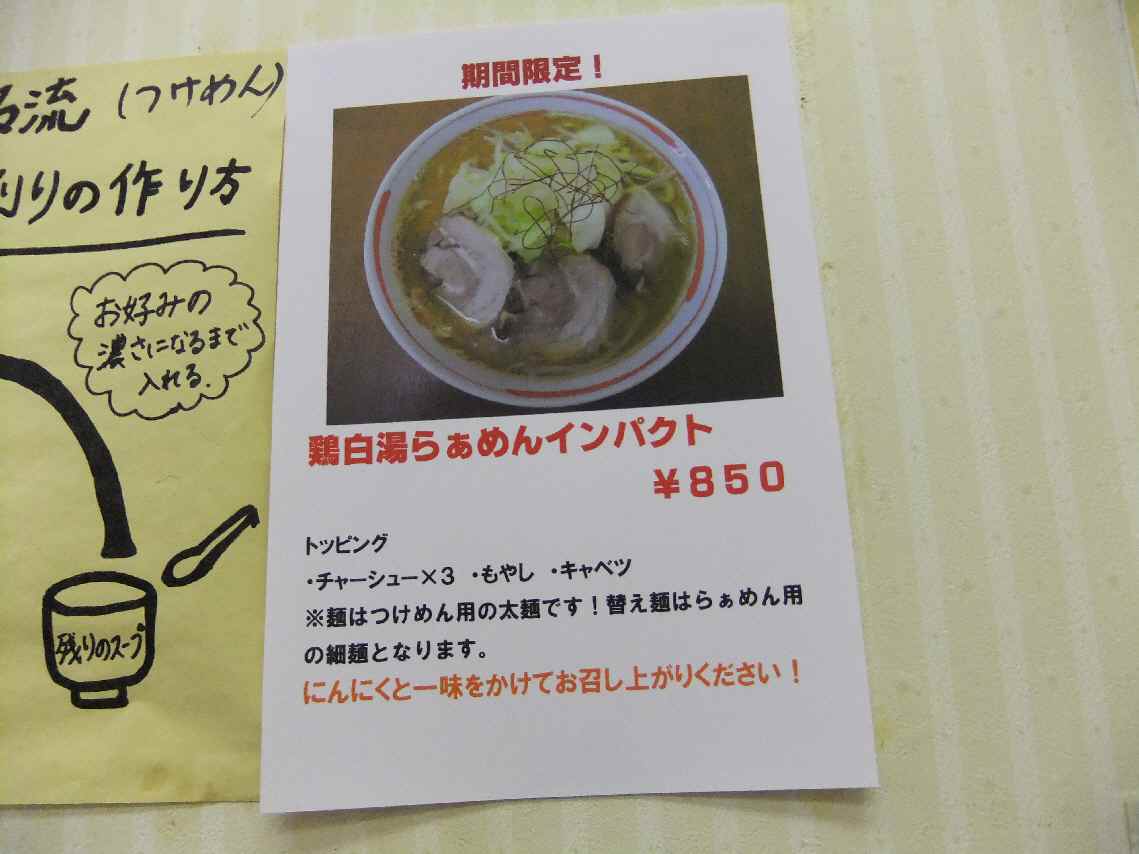 流（つけめん）
りの作り方
お好みの
濃さになるまで
入れる.
残りのスープ
期間限定！
鶏白湯らぁめんインパクト
￥８５０
トッピング
・チャーシュー×３　・もやし　・キャベツ
※麺はつけめん用の太麺です！替え麺はらぁめん用
の細麺となります。
にんにくと一味をかけてお召し上がりください！